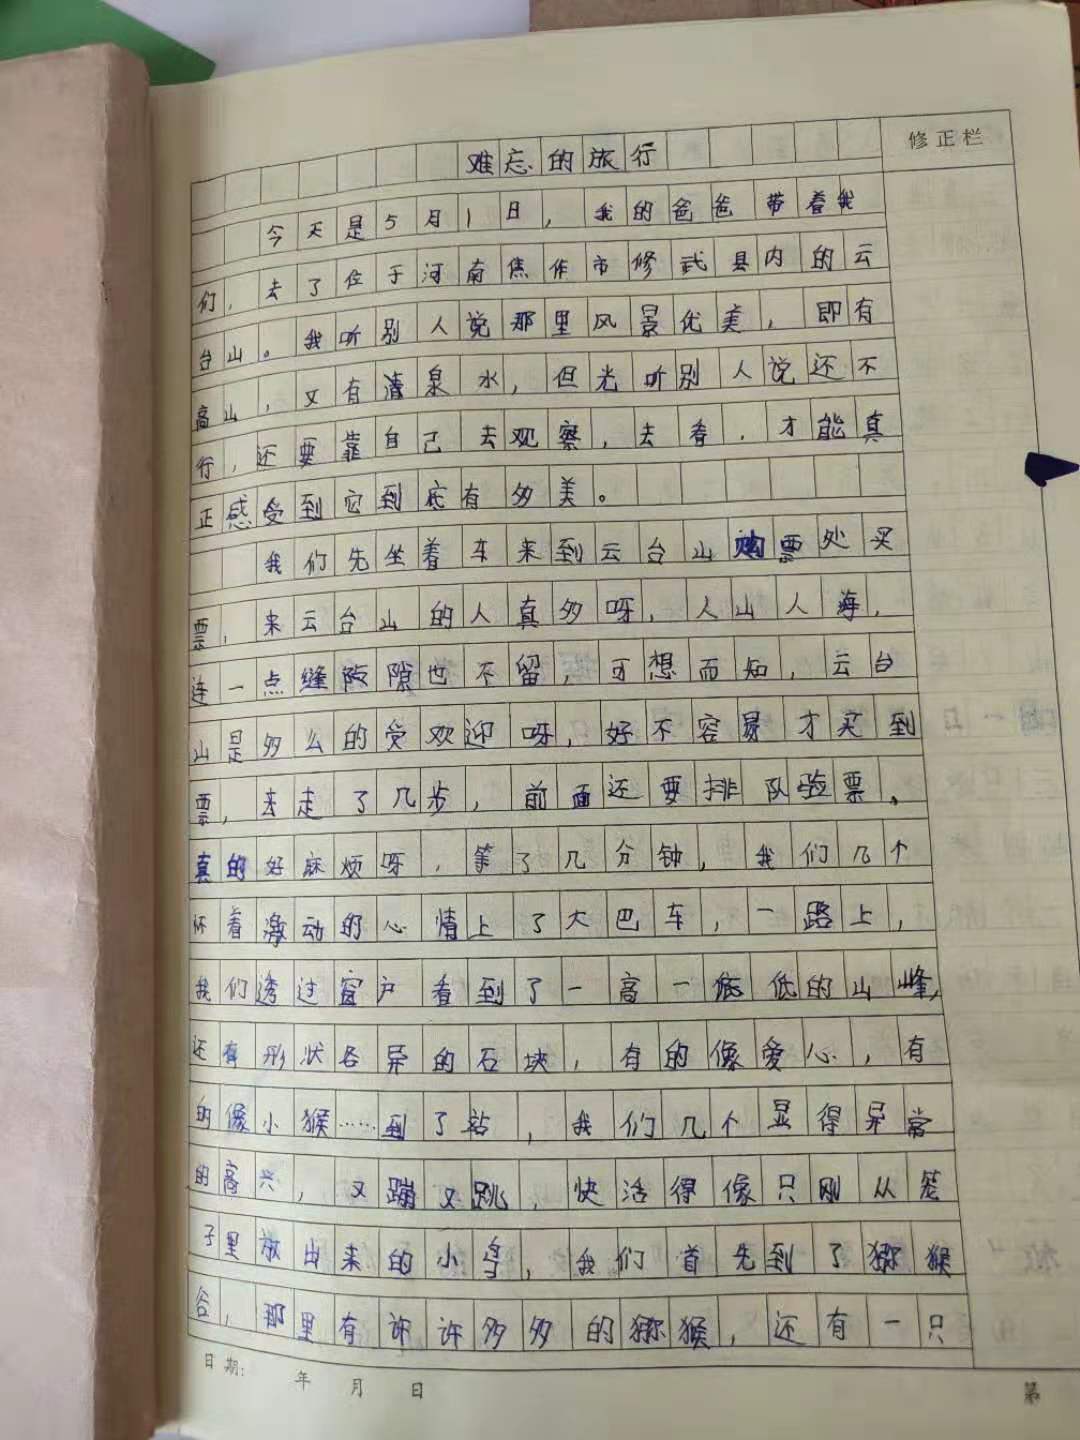 难忘的旅行
修正栏
今天是5月1日，我的爸爸带着我
们，去了位于河南焦作市修武县内的云
台山。我听别人说那里风景优美，即有
高山，又有清泉水，但光听别人说还不
行，还要靠自己去观察，去看，才能真
正感受到它到底有多美。
我们先坐着车来到云台山购票处买
票，来云台山的人真多呀，人山人海，
连一点缝隙也不留，可想而知，云台
山是多么的受欢迎呀，好不容易才买到
票，去走了几步，前面还要排队验票、
真的好麻烦呀，等了几分钟，我们几个
怀着激动的心情上了大巴车，一路上，
我们透过窗户看到了一高一低低的山峰，
还有形状各异的石块，有的像爱心，有
的像小猴……到了站，我们几个显得异常
的高兴，又蹦又跳，快活得像只刚从笼
子里放出来的小鸟，我们首先到了猕猴
谷，那里有许许多多的猕猴，还有一只
日期： 年 月 日
第